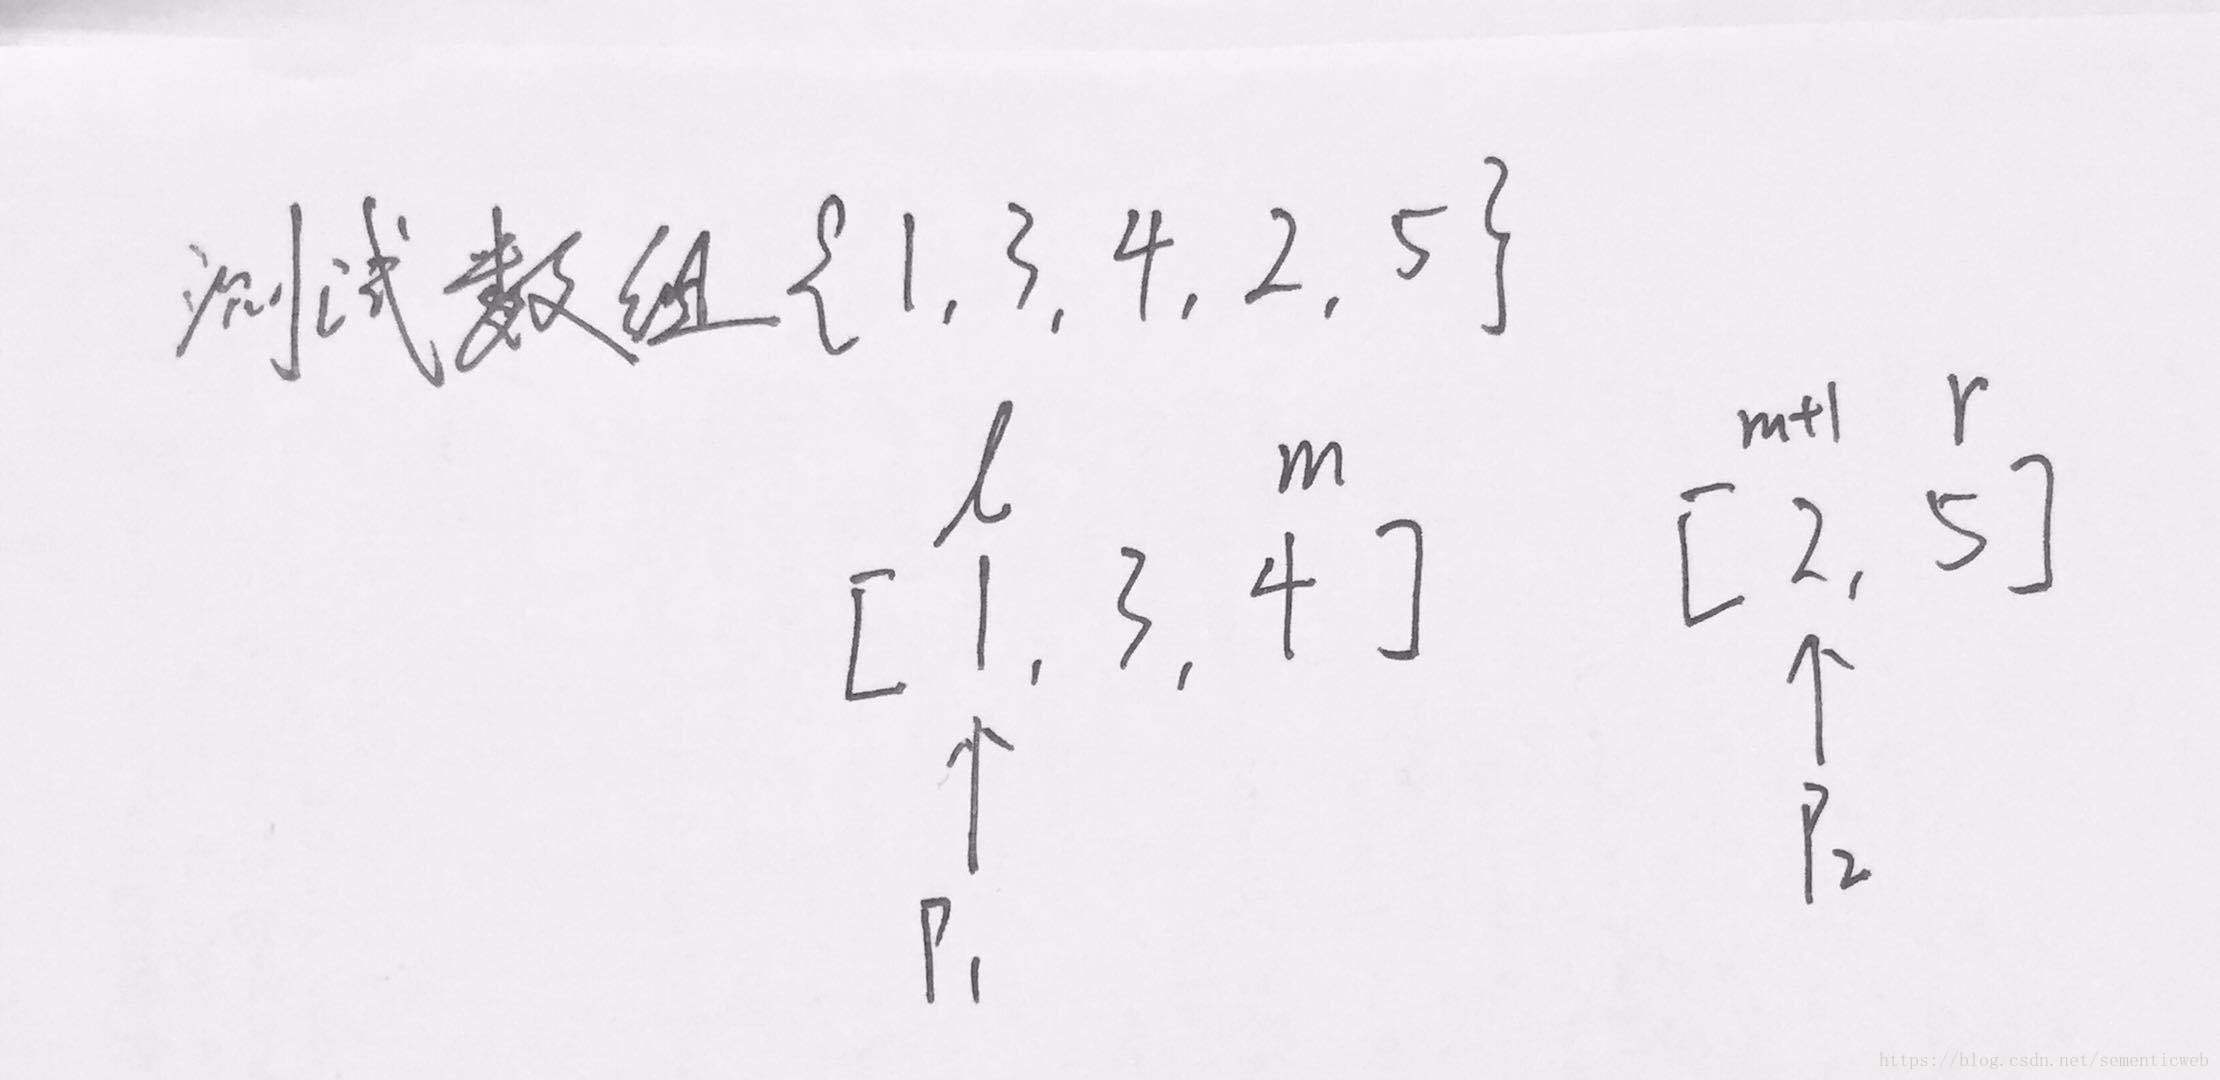 测试数组{1,3,4,2,5}
l m m+1 r
[1,3,4] [2,5]
P1 P2
https://blog.csdn.net/sementicweb